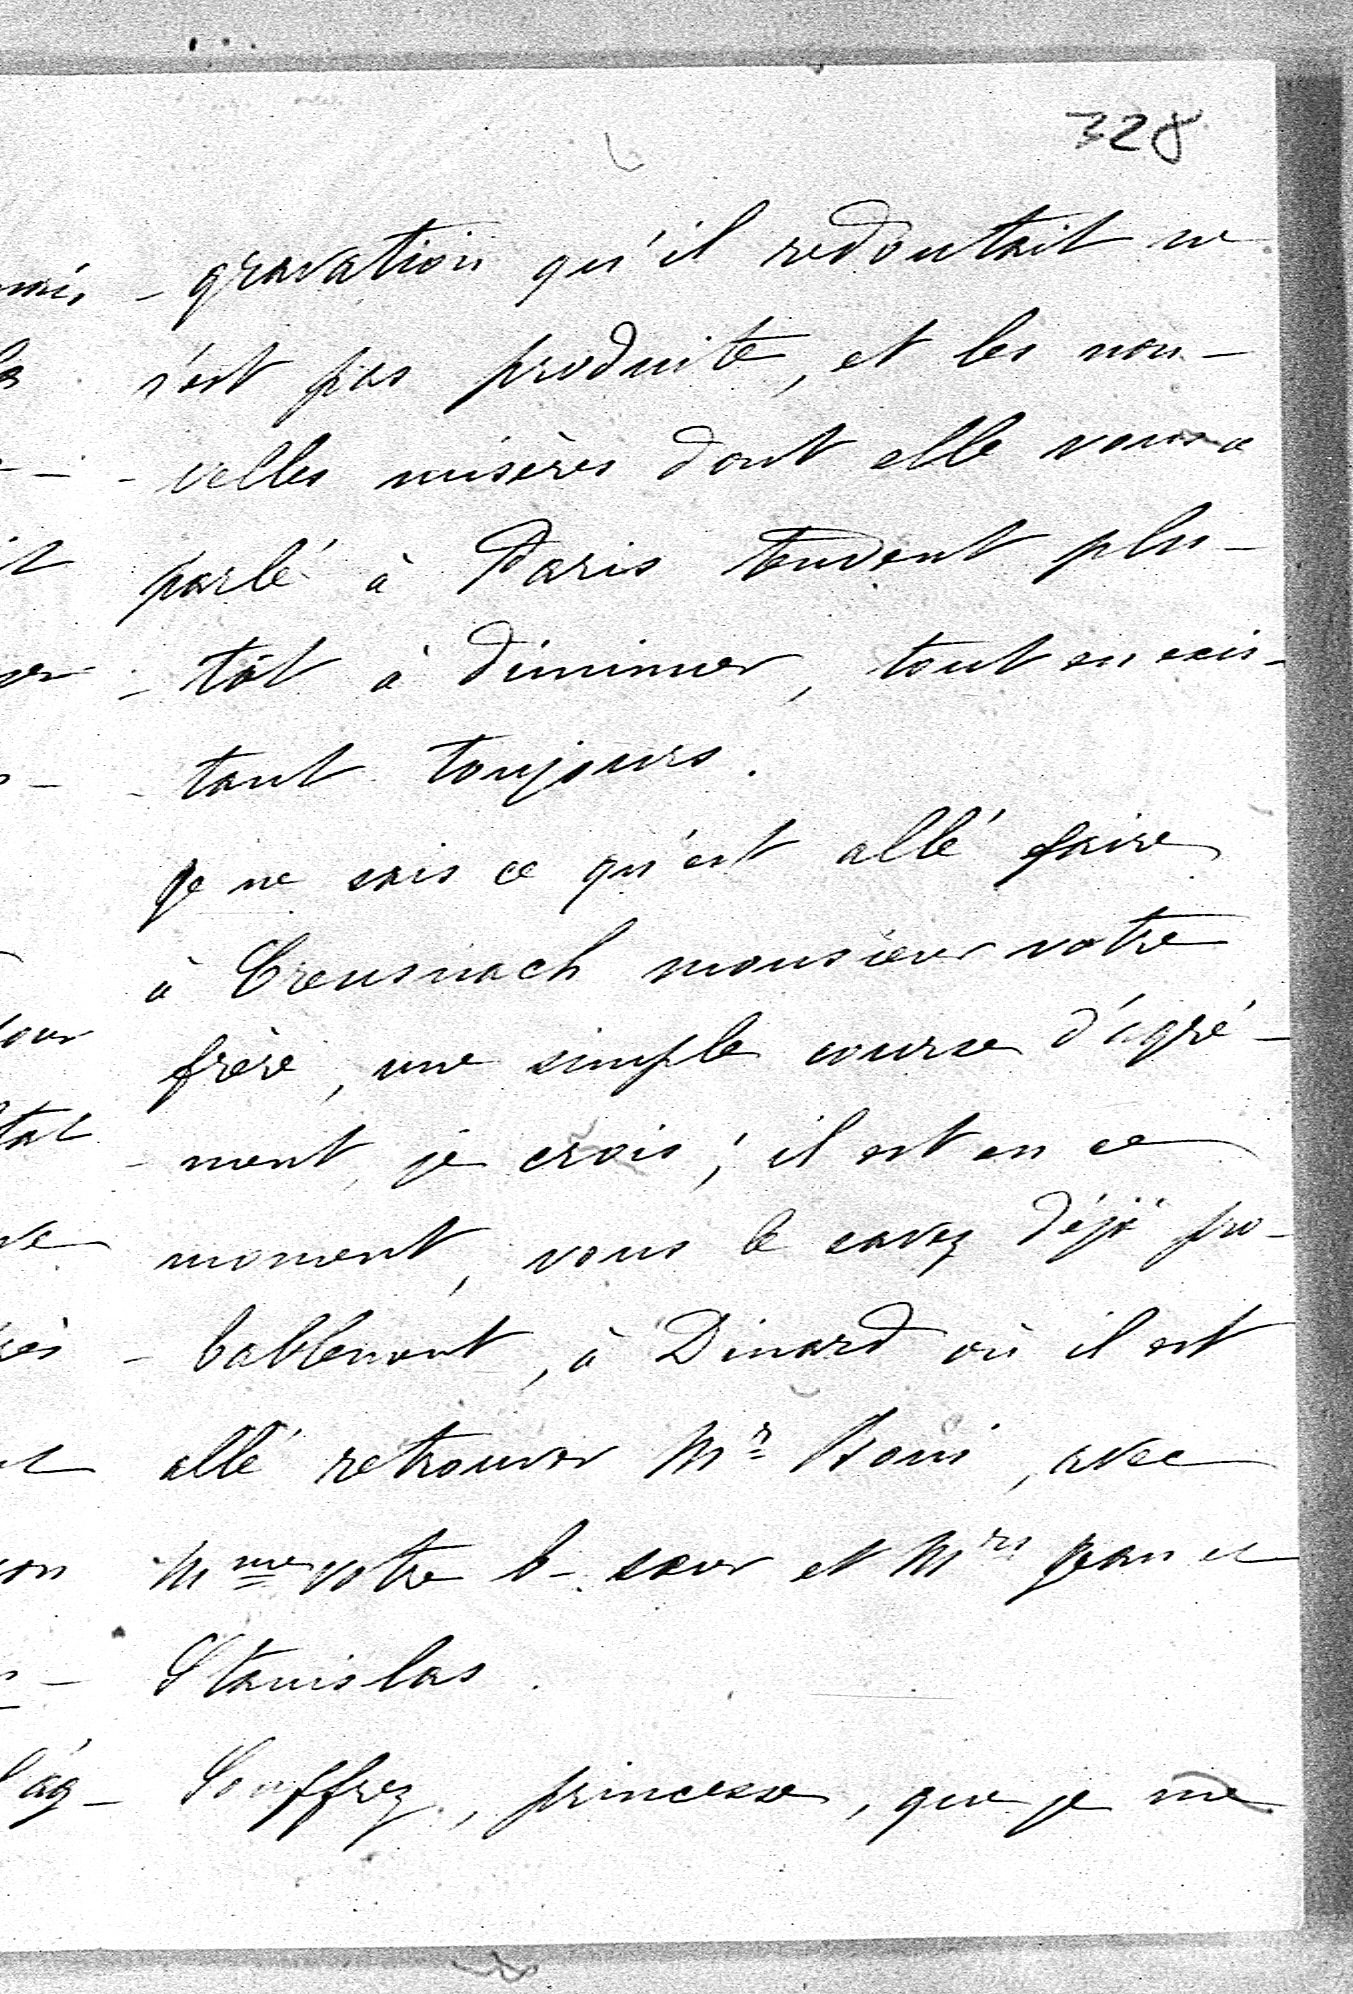 328
- gravation qu'il redoutait ne
s'est pas produite, et les nou-
- velles misères dont elle vous a
parlé à Paris tendent plu-
- tôt à diminuer, tout en exis-
- tant toujours.
Je ne sais ce qu'est allé faire
à Creusnach monsieur votre
frère, une simple course d'agré-
- ment, je crois; il est en ce
moment, vous le savez déjà pro-
- bablement, à Dinard où il est
allé retrouver Mr , avec
Mme votre b-sœur et Mrs Jean et
Stanislas.
Souffrez, princesse, que je me